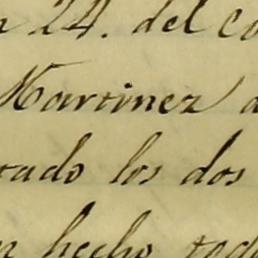 24. del co
Martinez a
tado los dos
hecho tod